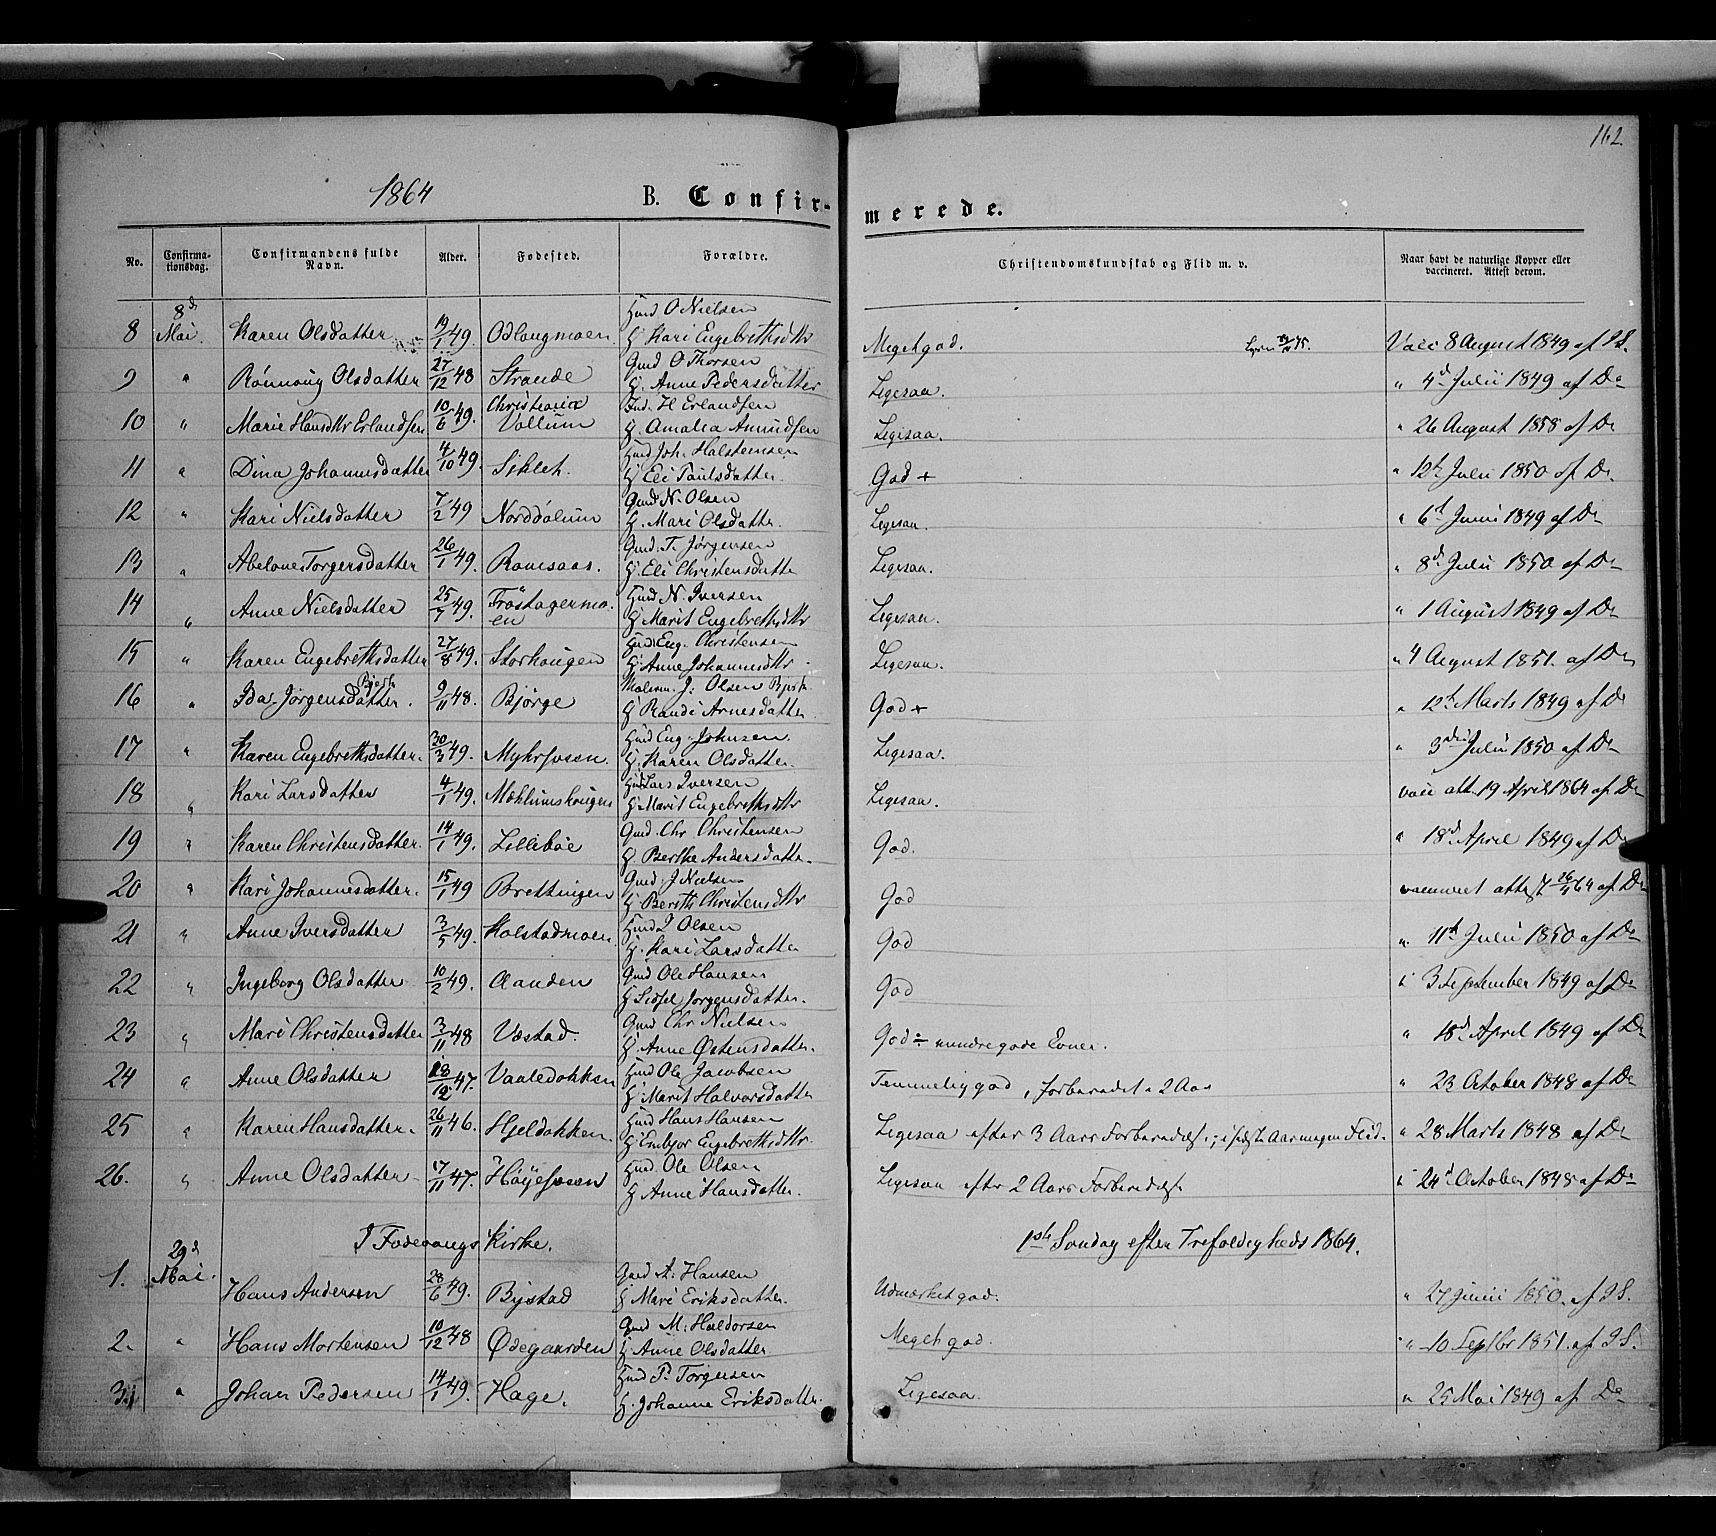 162.
1864 B. Confir- merede.
No. Confirma- tionsdag. Confirmandens fulde Navn. Alder. Fødested. Forældre. Christendomskundskab og Flid m. v. Naar havt de naturlige Kopper eller vaccineret. Attest derom.
8 8d Mai. Karen Olsdatter 19/1 49. Odlaugmoen Huusd O Nielsen H Kari Engebrethsdttr Megetgod. Vacc 8 August 1849 af IS.
9 " Rønnoug Olsdatter 27/12 48 Strande Gmd O Thorsen H. Anne Pedersdatter Ligesaa. " 4d Julii 1849 af Do
10 " Marie Hansdttr Erlandsen 10/6 49. Christiania Vollum H Erlandsen H. Amalia Amundsen Ligesaa. " 26 August 1858 af Do
11 " Dina Johannesdatter 4/10 49. Sikleh. Huusd Joh. Halstensen H Eli Paulsdatter God + " 12t Julii 1850 af Do.
12 " Kari Nielsdatter 7/2 49 Norddølum Gmd N. Olsen H. Mari Olsdatter. Ligesaa. " 6d Junii 1849 af Do
13 " Abelone Torgersdatter 26/1 49. Romsaas. Gmd. T. Jørgensen H. Eli Christensdatte Ligesaa. " 8d Julii 1850 af Do
14 " Anne Nielsdatter 25/7 49. Frøstagermo- en Huusd N. Iversen H Marit Engebrethsdttr Ligesaa. " 1 August 1849 af Do
15 " Karen Engebrethsdatter 27/8 49. Storhougen Huusd Eng. Christensen H. Anne Johannesdttr Ligesaa. " 4 August 1851. af Do
16 " Ida Jørgensdatter. 9/11 48. Bjørge J: Olsen H Randi Arnesdatter. God + " 12t Marts 1849 af Do
17 " Karen Engebrethsdatter. 30/3 49. Myhrsveen. Huusd Eng. Johnsen H. Karen Olsdatter. Ligesaa " 3die Julii 1850 af Do
18 " Kari Larsdatter 4/1 49. Mæhlumshougen Huusd Lars Iversen H. Marit Engebrethsdttr Ligesaa. vacc att. 19 April 1864 af Do
19 " Karen Christensdatter. 14/1 49. Lillebøe Gmd. Chr Christensen H. Berthe Andersdatter. God. " 18d April 1849 af Do
20 " Kari Johannesdatter. 15/1 49 Brettingen Gmd. J Nielsen H Berith Christensdttr God 26/4 64 af Do
21 " Anne Iversdatter 3/5 49. Kolstadmoen Huusd I Olsen H. Kari Larsdatter God " 11t Julii 1850 af Do
22 " Ingeborg Olsdatter 10/2 49. Aanden Gmd Ole Hansen H Sidsel Jørgensdatter. God " 3 September 1849 af Do
23 " Mari Christensdatter 3/11 48 Væstad. Gmd Chr Nielsen H. Anne Østensdatter. God ÷ mindregode Evner. " 18d April 1849 af Do
24 " Anne Olsdatter 18/12 47. Vaaledokken Huusd Ole Jacobsen H. Marit Halvorsdatter Temmelig god, forberedet 2 Aar " 23 October 1848 af Do
25 " Karen Hansdatter. 26/11 46. Hjeldokken. Huusd Hans Hansen H Embjør Engebrethsdttr. Ligesaa efter 3 Aars Forberedelse; i sidste Aar megen Flid. " 28 Marts 1848 af Do
26. " Anne Olsdatter 17/11 47. Høyesveen Huusd. Ole Olsen H Anne Hansdatter. Ligesaa efter 2 Aars Forberedelse " 24d October 1848 af Do
I Fodevangs Kirke. 1ste Søndag efter Trefoldigheds 1864.
1. 29d Mai. Hans Andersen 28/6 49. Bystad Gmd A. Hansen H Mari Eriksdatter. Udmærketgod. " 27 Junii 1850. af IS.
2. " Hans Mortensen 10/12 48 Ødegaarden Gmd M. Haldorsen H. Anne Olsdatter Megetgod. " 10 Septbr 1851. af IS.
3. " Johan Pedersen 14/1 49. Hage. Huusd P. Torgersen H. Johanne Eriksdatter. Ligesaa. " 25 Mai 1849 af Do